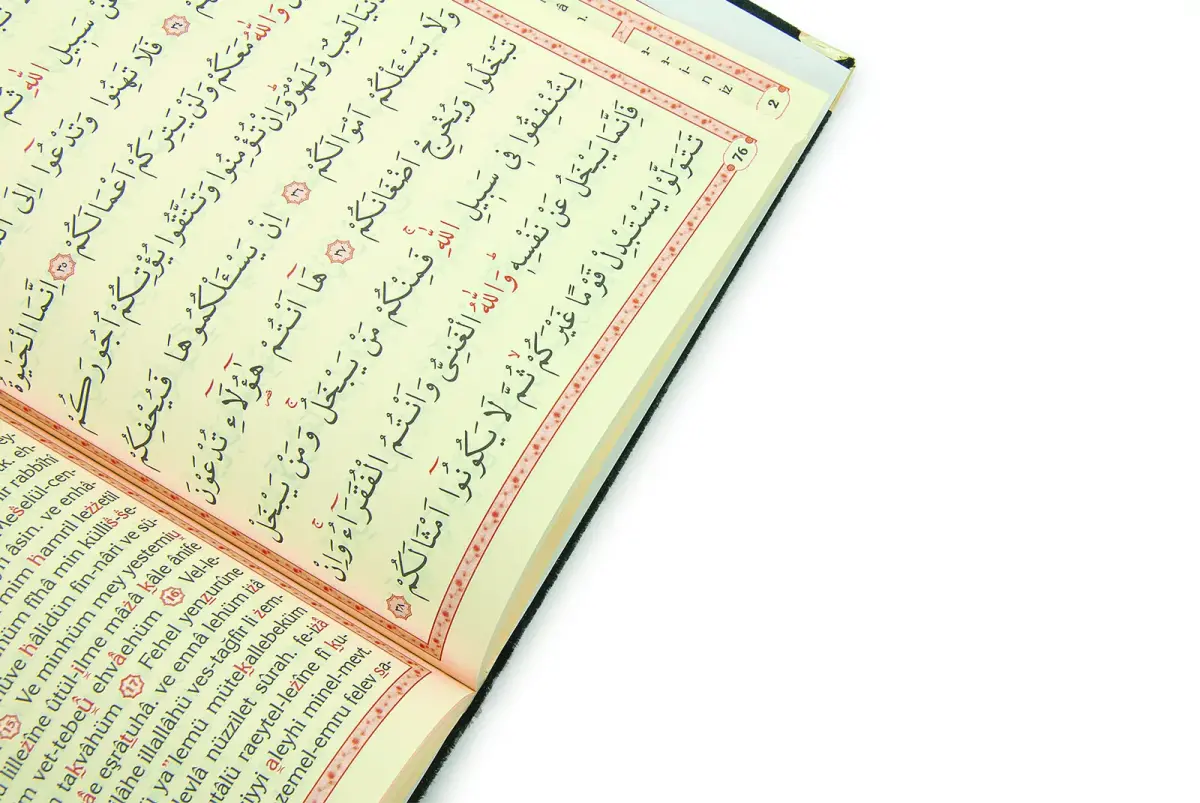 سَبِيلِ اللّٰهِ ثُمَّ
﴿٣٤﴾ فَلَا تَهِنُوا وَتَدْعُٓوا اِلَى
وَاللّٰهُ مَعَكُمْ وَلَنْ يَتِرَكُمْ اَعْمَالَكُمْ ﴿٣٥﴾ اِنَّمَا الْحَيٰوةُ
لَعِبٌ وَلَهْوٌ وَاِنْ تُؤْمِنُوا وَتَتَّقُوا يُؤْتِكُمْ اُجُورَكُمْ
وَلَا يَسْـَٔلْكُمْ اَمْوَالَكُمْ ﴿٣٦﴾ اِنْ يَسْـَٔلْكُمُوهَا فَيُحْفِكُمْ
تَبْخَلُوا وَيُخْرِجْ اَضْغَانَكُمْ ﴿٣٧﴾ هَٓا اَنْتُمْ هٰٓؤُلَٓاءِ تُدْعَوْنَ
لِتُنْفِقُوا فِى سَبِيلِ اللّٰهِ فَمِنْكُمْ مَنْ يَبْخَلُ وَمَنْ يَبْخَلْ
فَاِنَّمَا يَبْخَلُ عَنْ نَفْسِهِ وَاللّٰهُ الْغَنِىُّ وَاَنْتُمُ الْفُقَرَٓاءُ وَاِنْ
تَتَوَلَّوْا يَسْتَبْدِلْ قَوْمًا غَيْرَكُمْ ثُمَّ لَا يَكُونُٓوا اَمْثَالَكُمْ ﴿٣٨﴾
76
2
iz
rabbihî
meselül-cen-
âsin. ve enhâ-
hamril lezzetil
fîhâ min külliŝ-ŝe-
hâlidün fin-nâri ve sü-
15 Ve minhüm mey yestemiu
lillezîne ûtül-ilme mâzâ kâle ânife
vet-tebeû ehvâehüm 16 Vel-le-
takvâhüm 17 Fehel yenzurûne
eşrâtuhâ. ve ennâ lehüm izâ
ilâhe illallahü ves-tağfir li zem-
ya'lemü mütekallebeküm
levlâ nüzzilet sûrah. fe-izâ
raeytel-lezîne fî ku-
aleyhi minel-mevt.
zemel-emru felev sa-